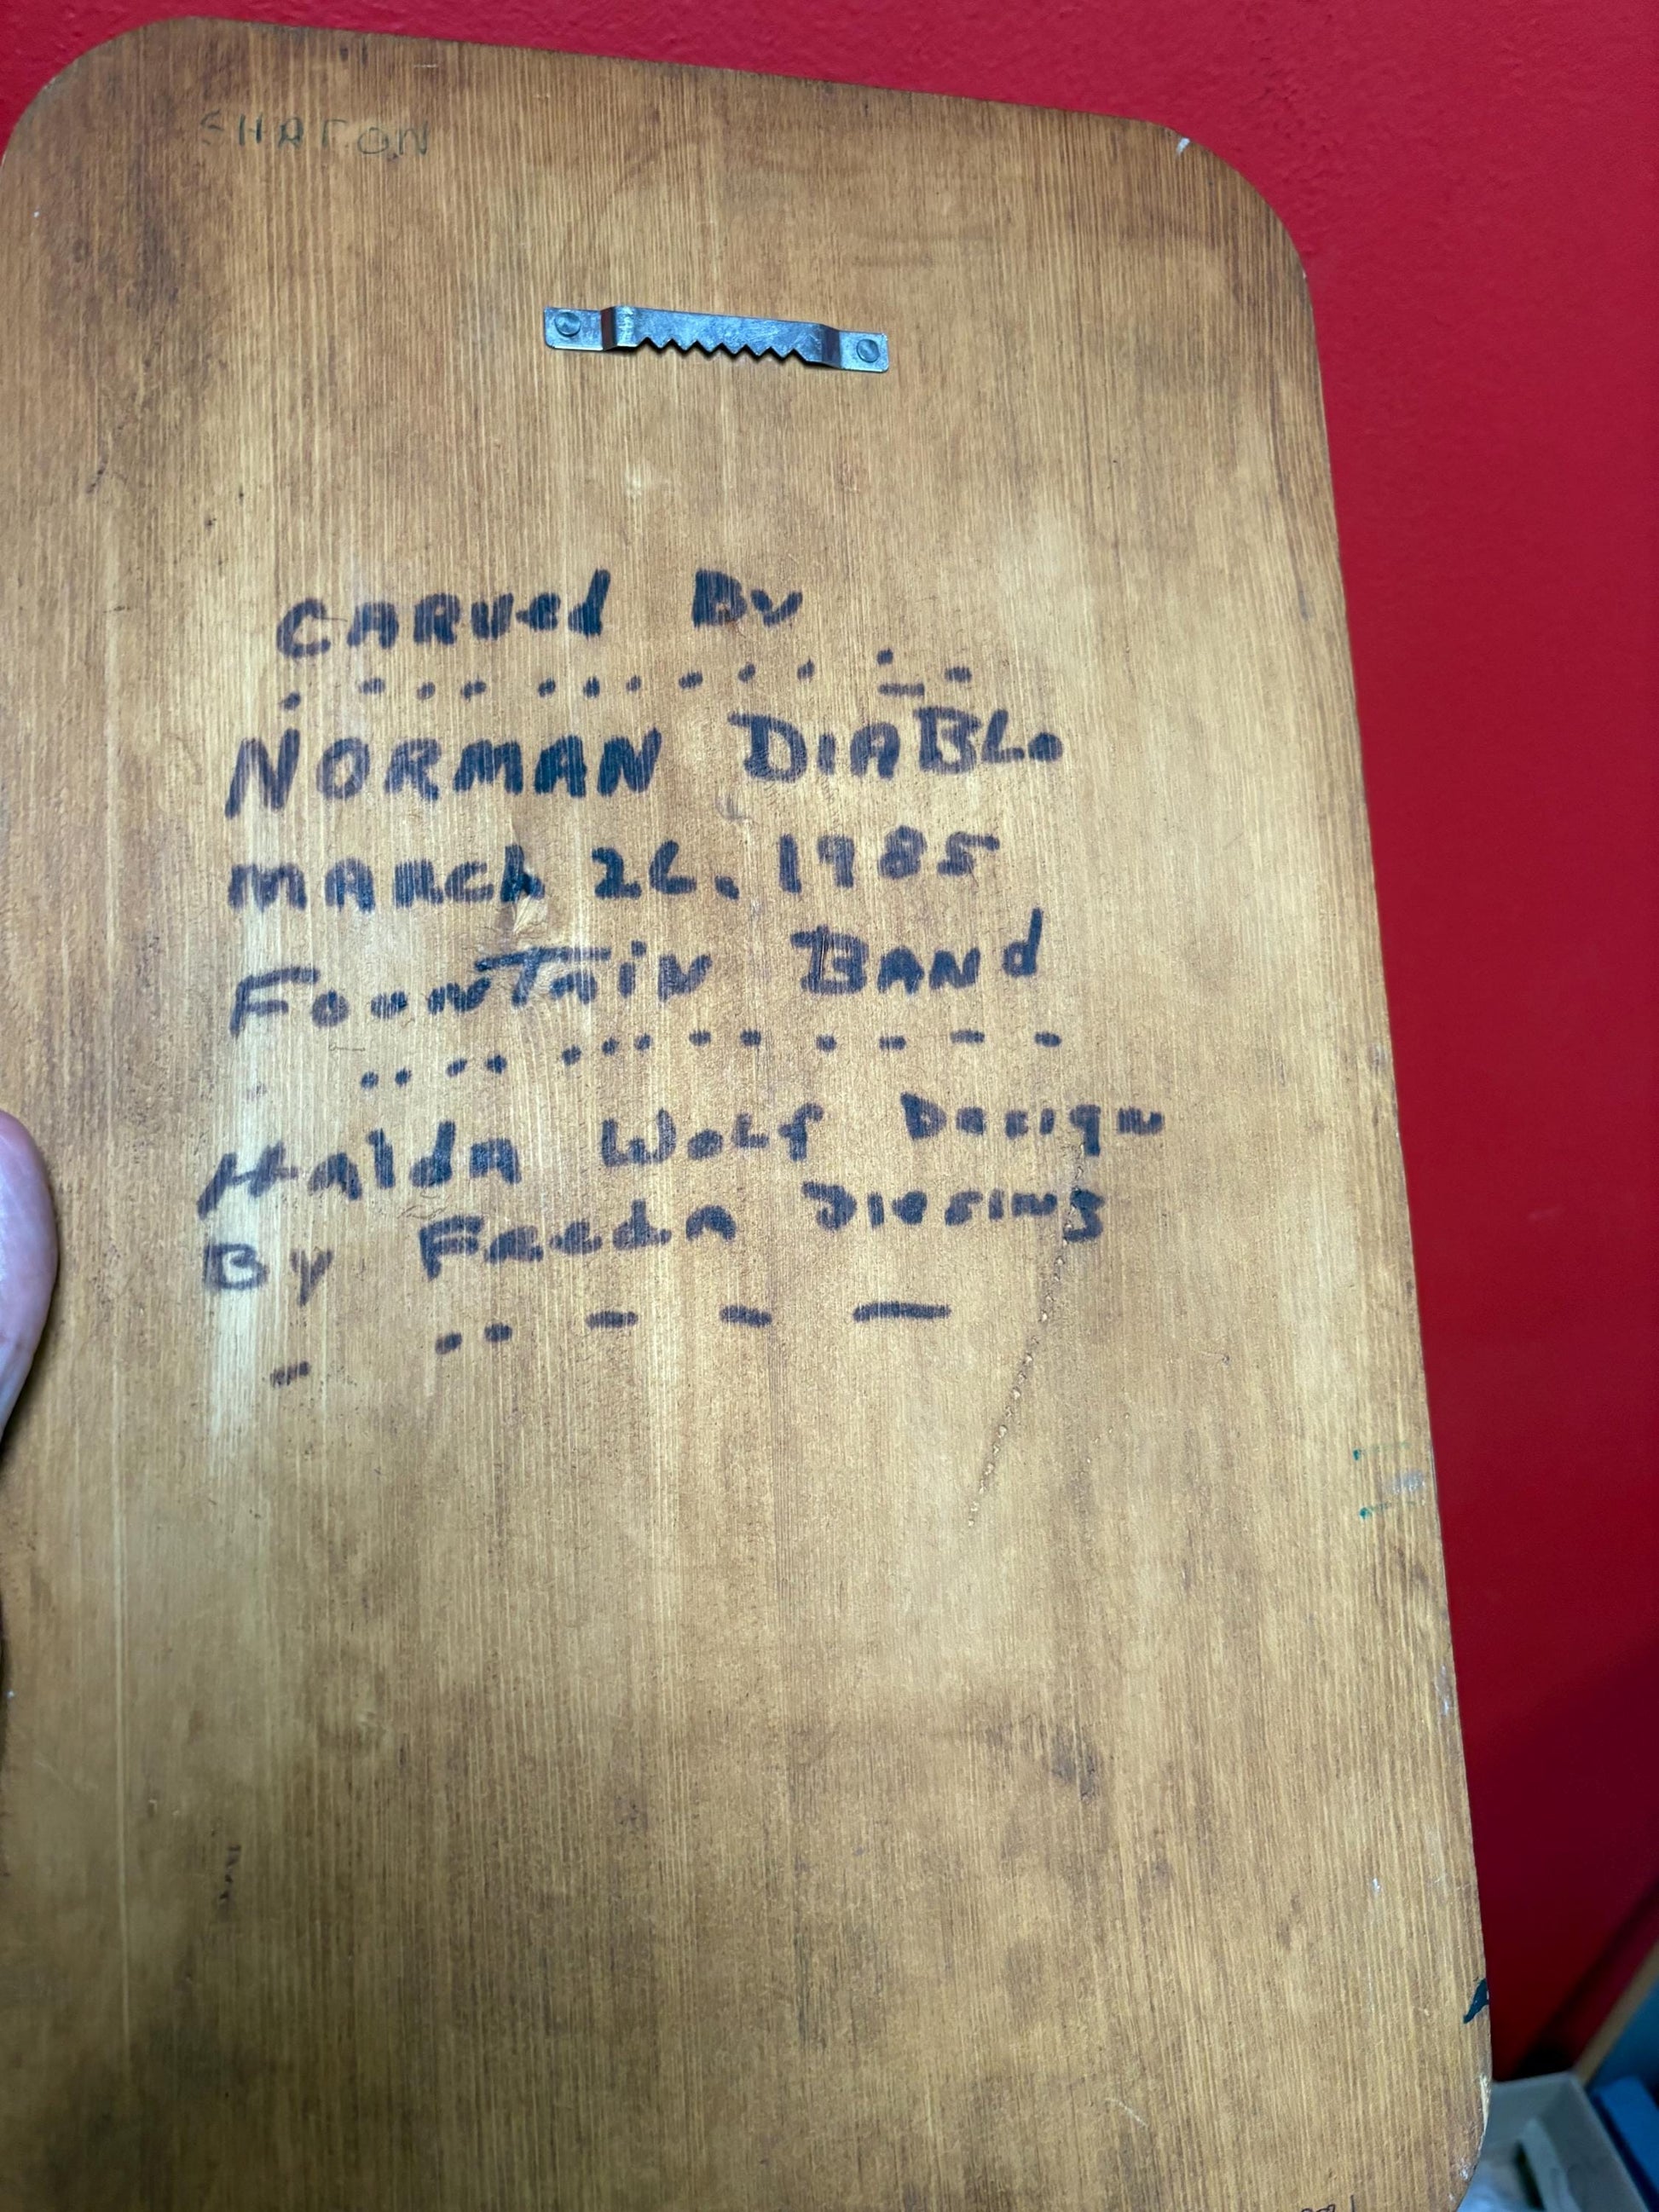 SHARON
CARVed By
NORMAN DIABLo
MARch 26. 1985
FounTAiN BANd
HAldA WoLf Design
By FReedA Diesing